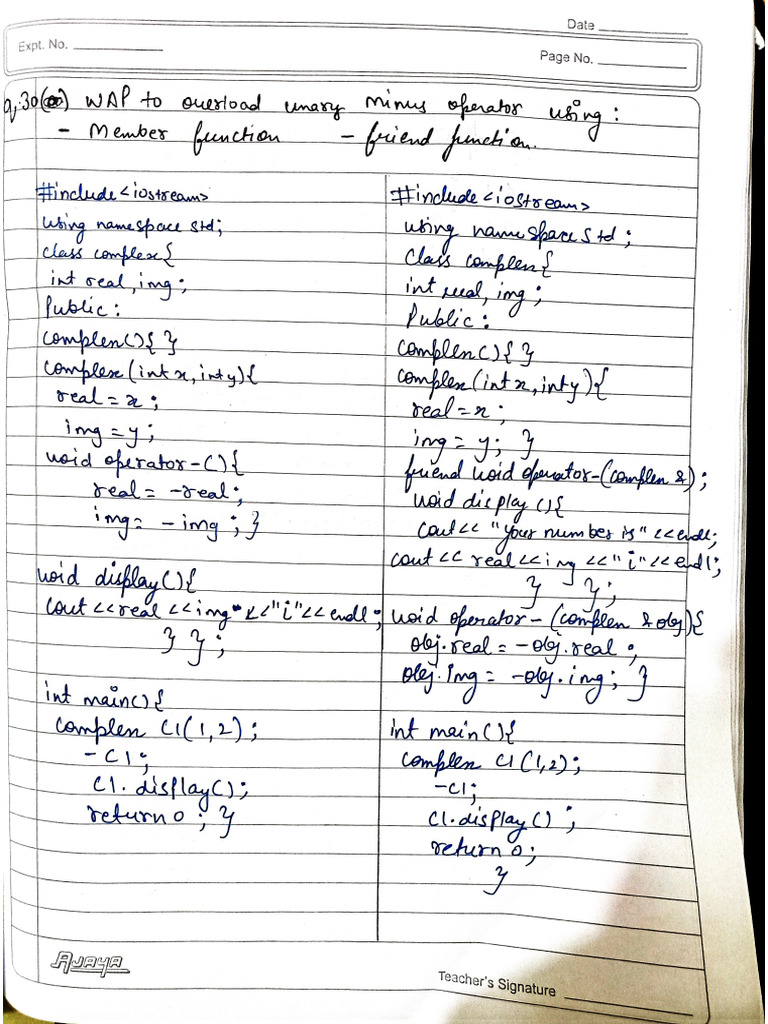 Date
Expt. No.
Page No.
Q.30 WAP to overload unary minus operator using:
- Member function - friend function.
#include<iostream>
using namespace std;
class complex{
int real, img;
Public:
complex(){ }
complex(int x, int y){
real = x;
img = y;
void operator-(){
real = -real;
img = -img; }
void display(){
cout<<real<<img<<"i"<<endl;
} };
int main(){
complex C1(1,2);
-C1;
C1.display();
return 0; }
#include<iostream>
using namespace std;
class complex{
int real, img;
Public:
complex(){ }
complex(int x, int y){
real = x;
img = y; }
friend void operator-(complex &);
void display(){
cout<< "Your number is" <<endl;
cout<< real<<img <<"i"<<endl;
} };
void operator-(complex & obj){
obj.real = -obj.real;
obj.img = -obj.img; }
int main(){
complex C1(1,2);
-C1;
C1.display();
return 0;
}
AJAYA
Teacher's Signature